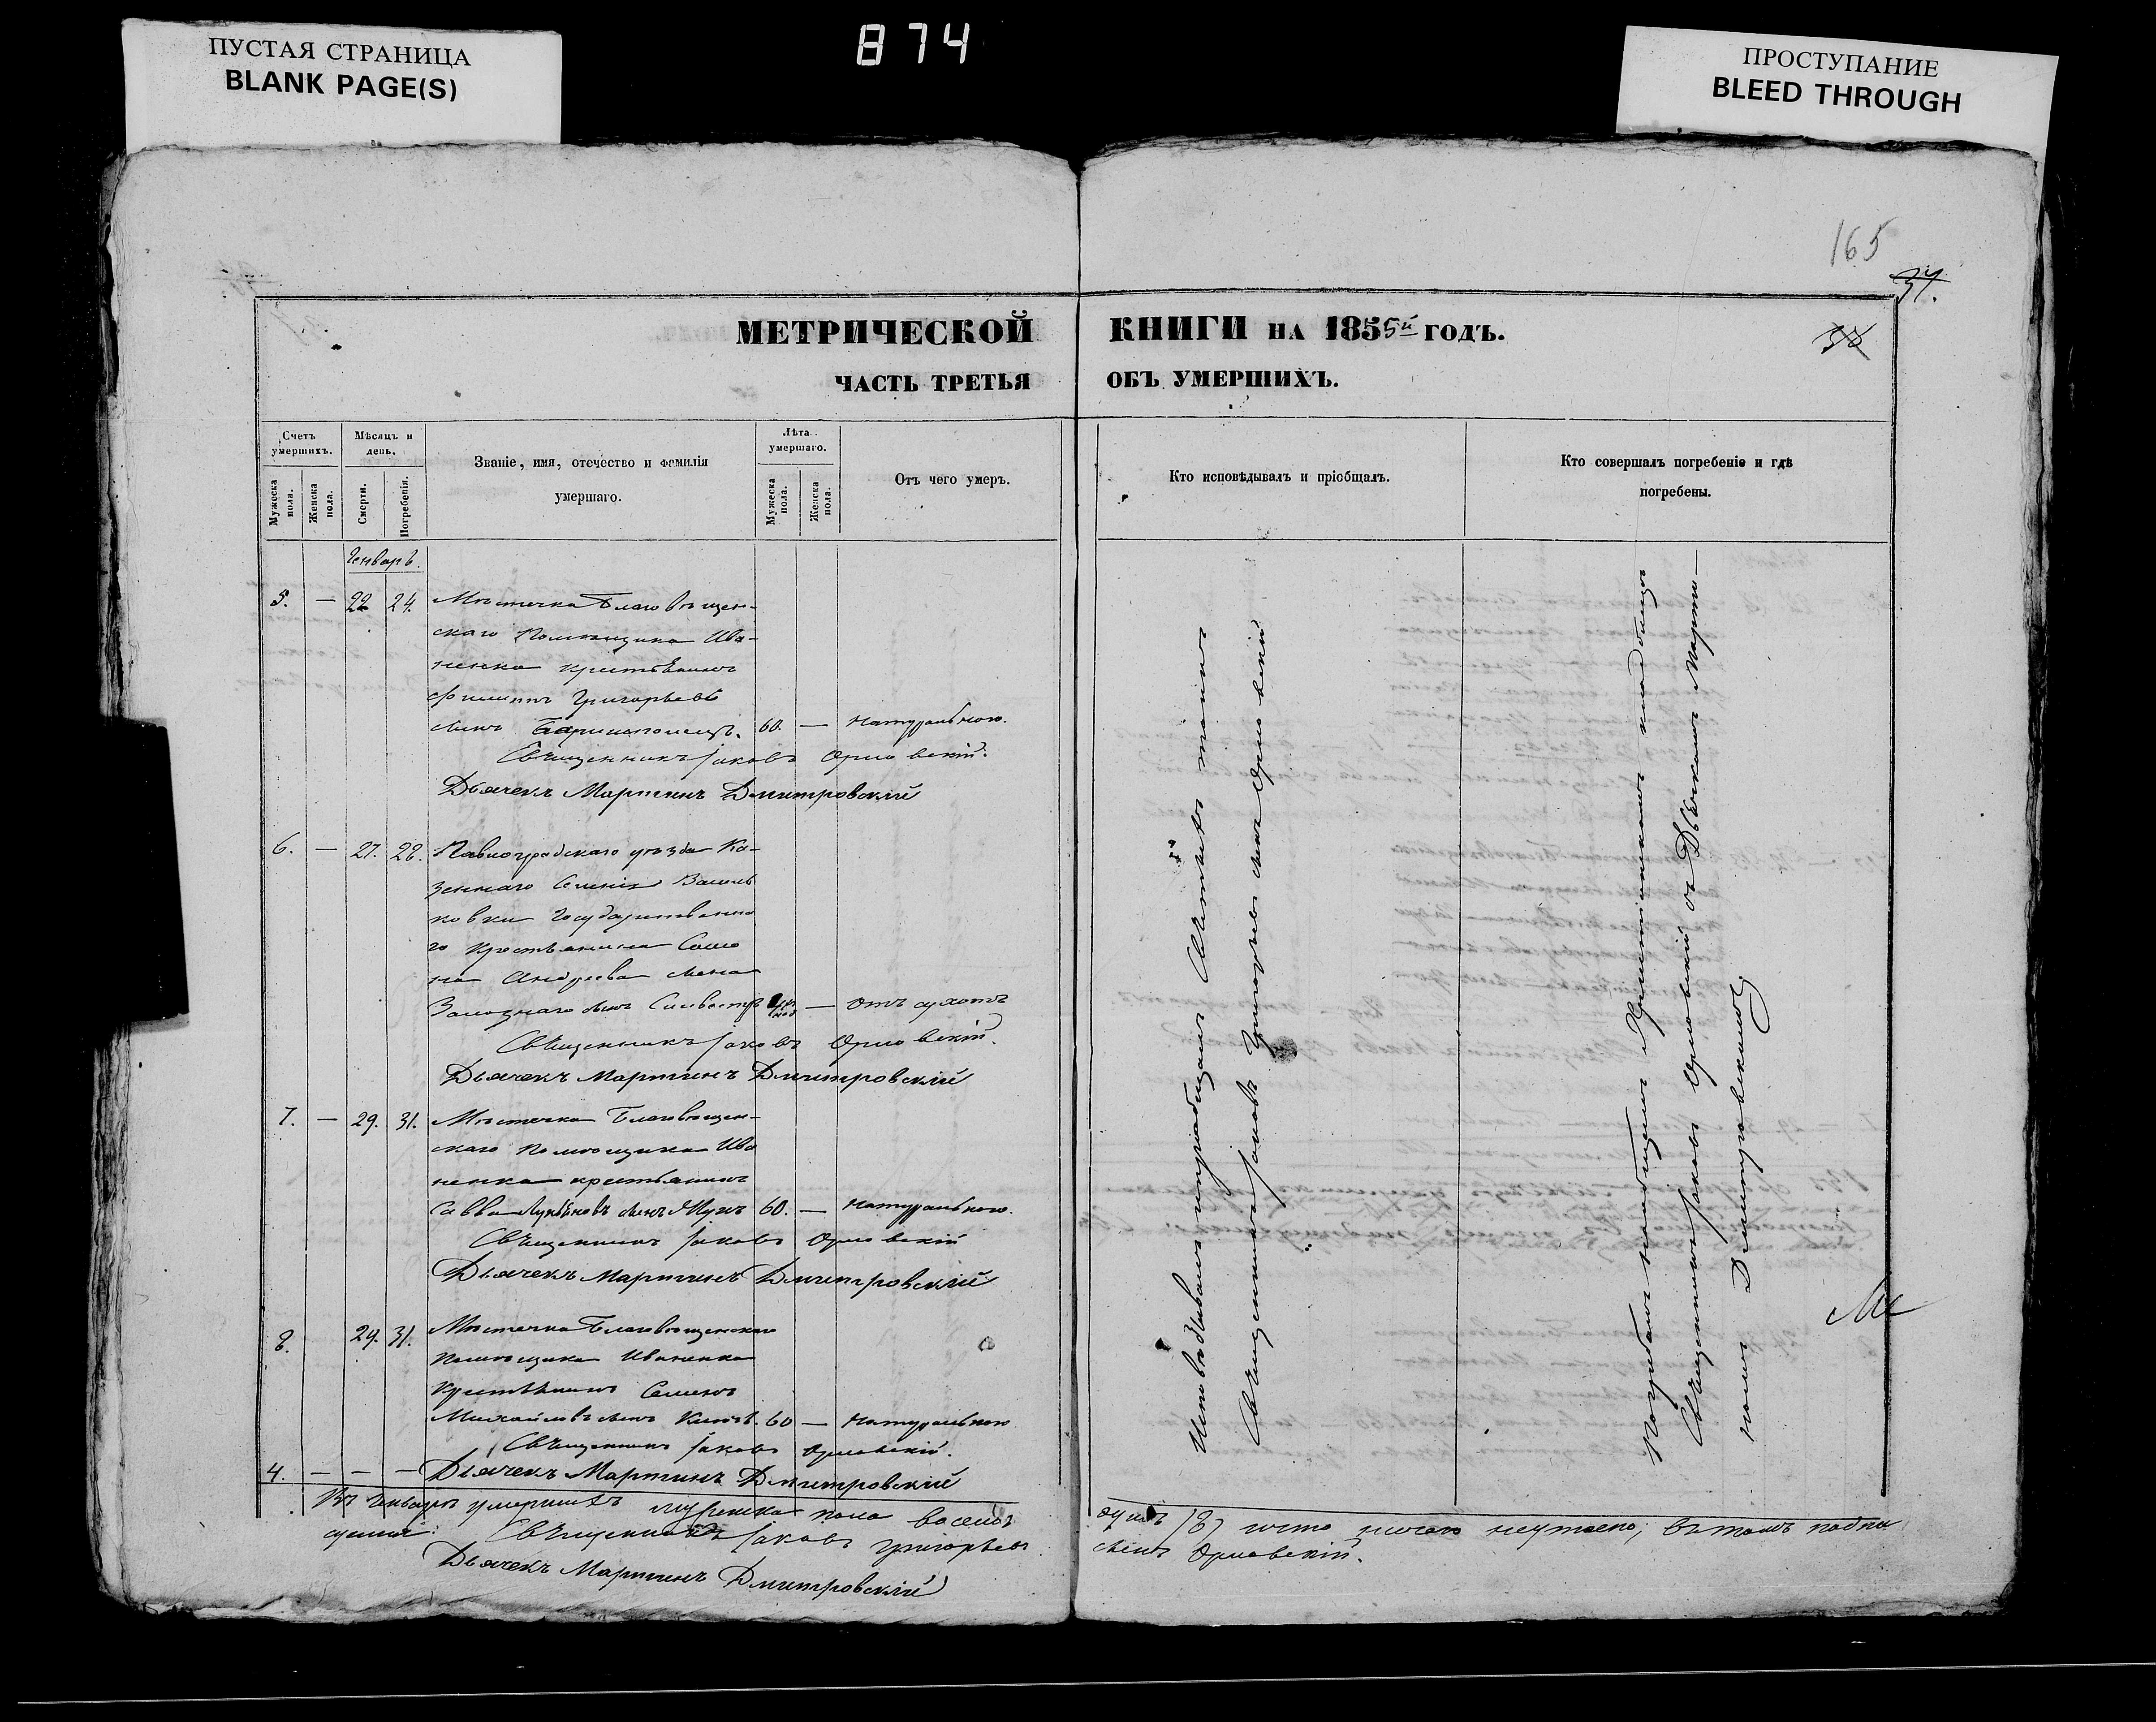 ПУСТАЯ СТРАНИЦА
BLANK PAGE(S)
874
ПРОСТУПАНИЕ
BLEED THROUGH
165
37.
38
МЕТРИЧЕСКОЙ КНИГИ НА 1855й ГОДЪ.
ЧАСТЬ ТРЕТЬЯ ОБЪ УМЕРШИХЪ.
Счетъ умершихъ.
Мужеска пола.
Женска пола.
Мѣсяцъ и день.
Смерти.
Погребенія.
Званіе, имя, отечество и фамилія
умершаго.
Лѣта умершаго.
Мужеска пола.
Женска пола.
Отъ чего умеръ.
Кто исповѣдывалъ и пріобщалъ.
Кто совершалъ погребеніе и гдѣ
погребены.
Генварь.
5. — 22 24. Мѣстечка Благовѣщен-
скаго Помѣщика Ива-
ненка крестьянинъ
Филиппъ Григорьевъ
сынъ 60. — Натуральною.
Священникъ Іаковъ Орловскій.
Дьячекъ Мартинъ Дмитровскій
6. — 27. 28. Павлоградскаго уѣзда Ка-
зеннаго Селенія Василь
ковки Государственна
го Крестьянина
на Андреева сына
сынъ Сильвестръ — Отъ сухотъ
Священникъ Іаковъ Орловскій.
Дьячекъ Мартинъ Дмитровскій
7. — 29. 31. Мѣстечка Благовѣщен-
скаго Помѣщика Ива
ненка крестьянинъ
Савва Лукьяновъ сынъ 60. — Натуральною.
Священникъ Іаковъ Орловскій
Дьячекъ Мартинъ Дмитровскій
8. 29. 31. Мѣстечка Благовѣщенскаго
Помѣщика Иваненка
Крестьянинъ Семенъ
Михайловъ сынъ 60 — Натуральною
Священникъ Іаковъ Орловскій.
4. — — — Дьячекъ Мартинъ Дмитровскій
Въ Генварѣ умершихъ мужеска пола восемь
душъ (8) что ничего неутаено, въ томъ подпи
суемся: Священникъ Іаковъ Григорьевъ
сынъ Орловскій.
Дьячекъ Мартинъ Дмитровскій
Священникъ Іаковъ Григорьевъ сынъ Орловскій
Священникъ Іаковъ Орловскій съ Дьячкомъ Марти-
номъ Дмитровскимъ